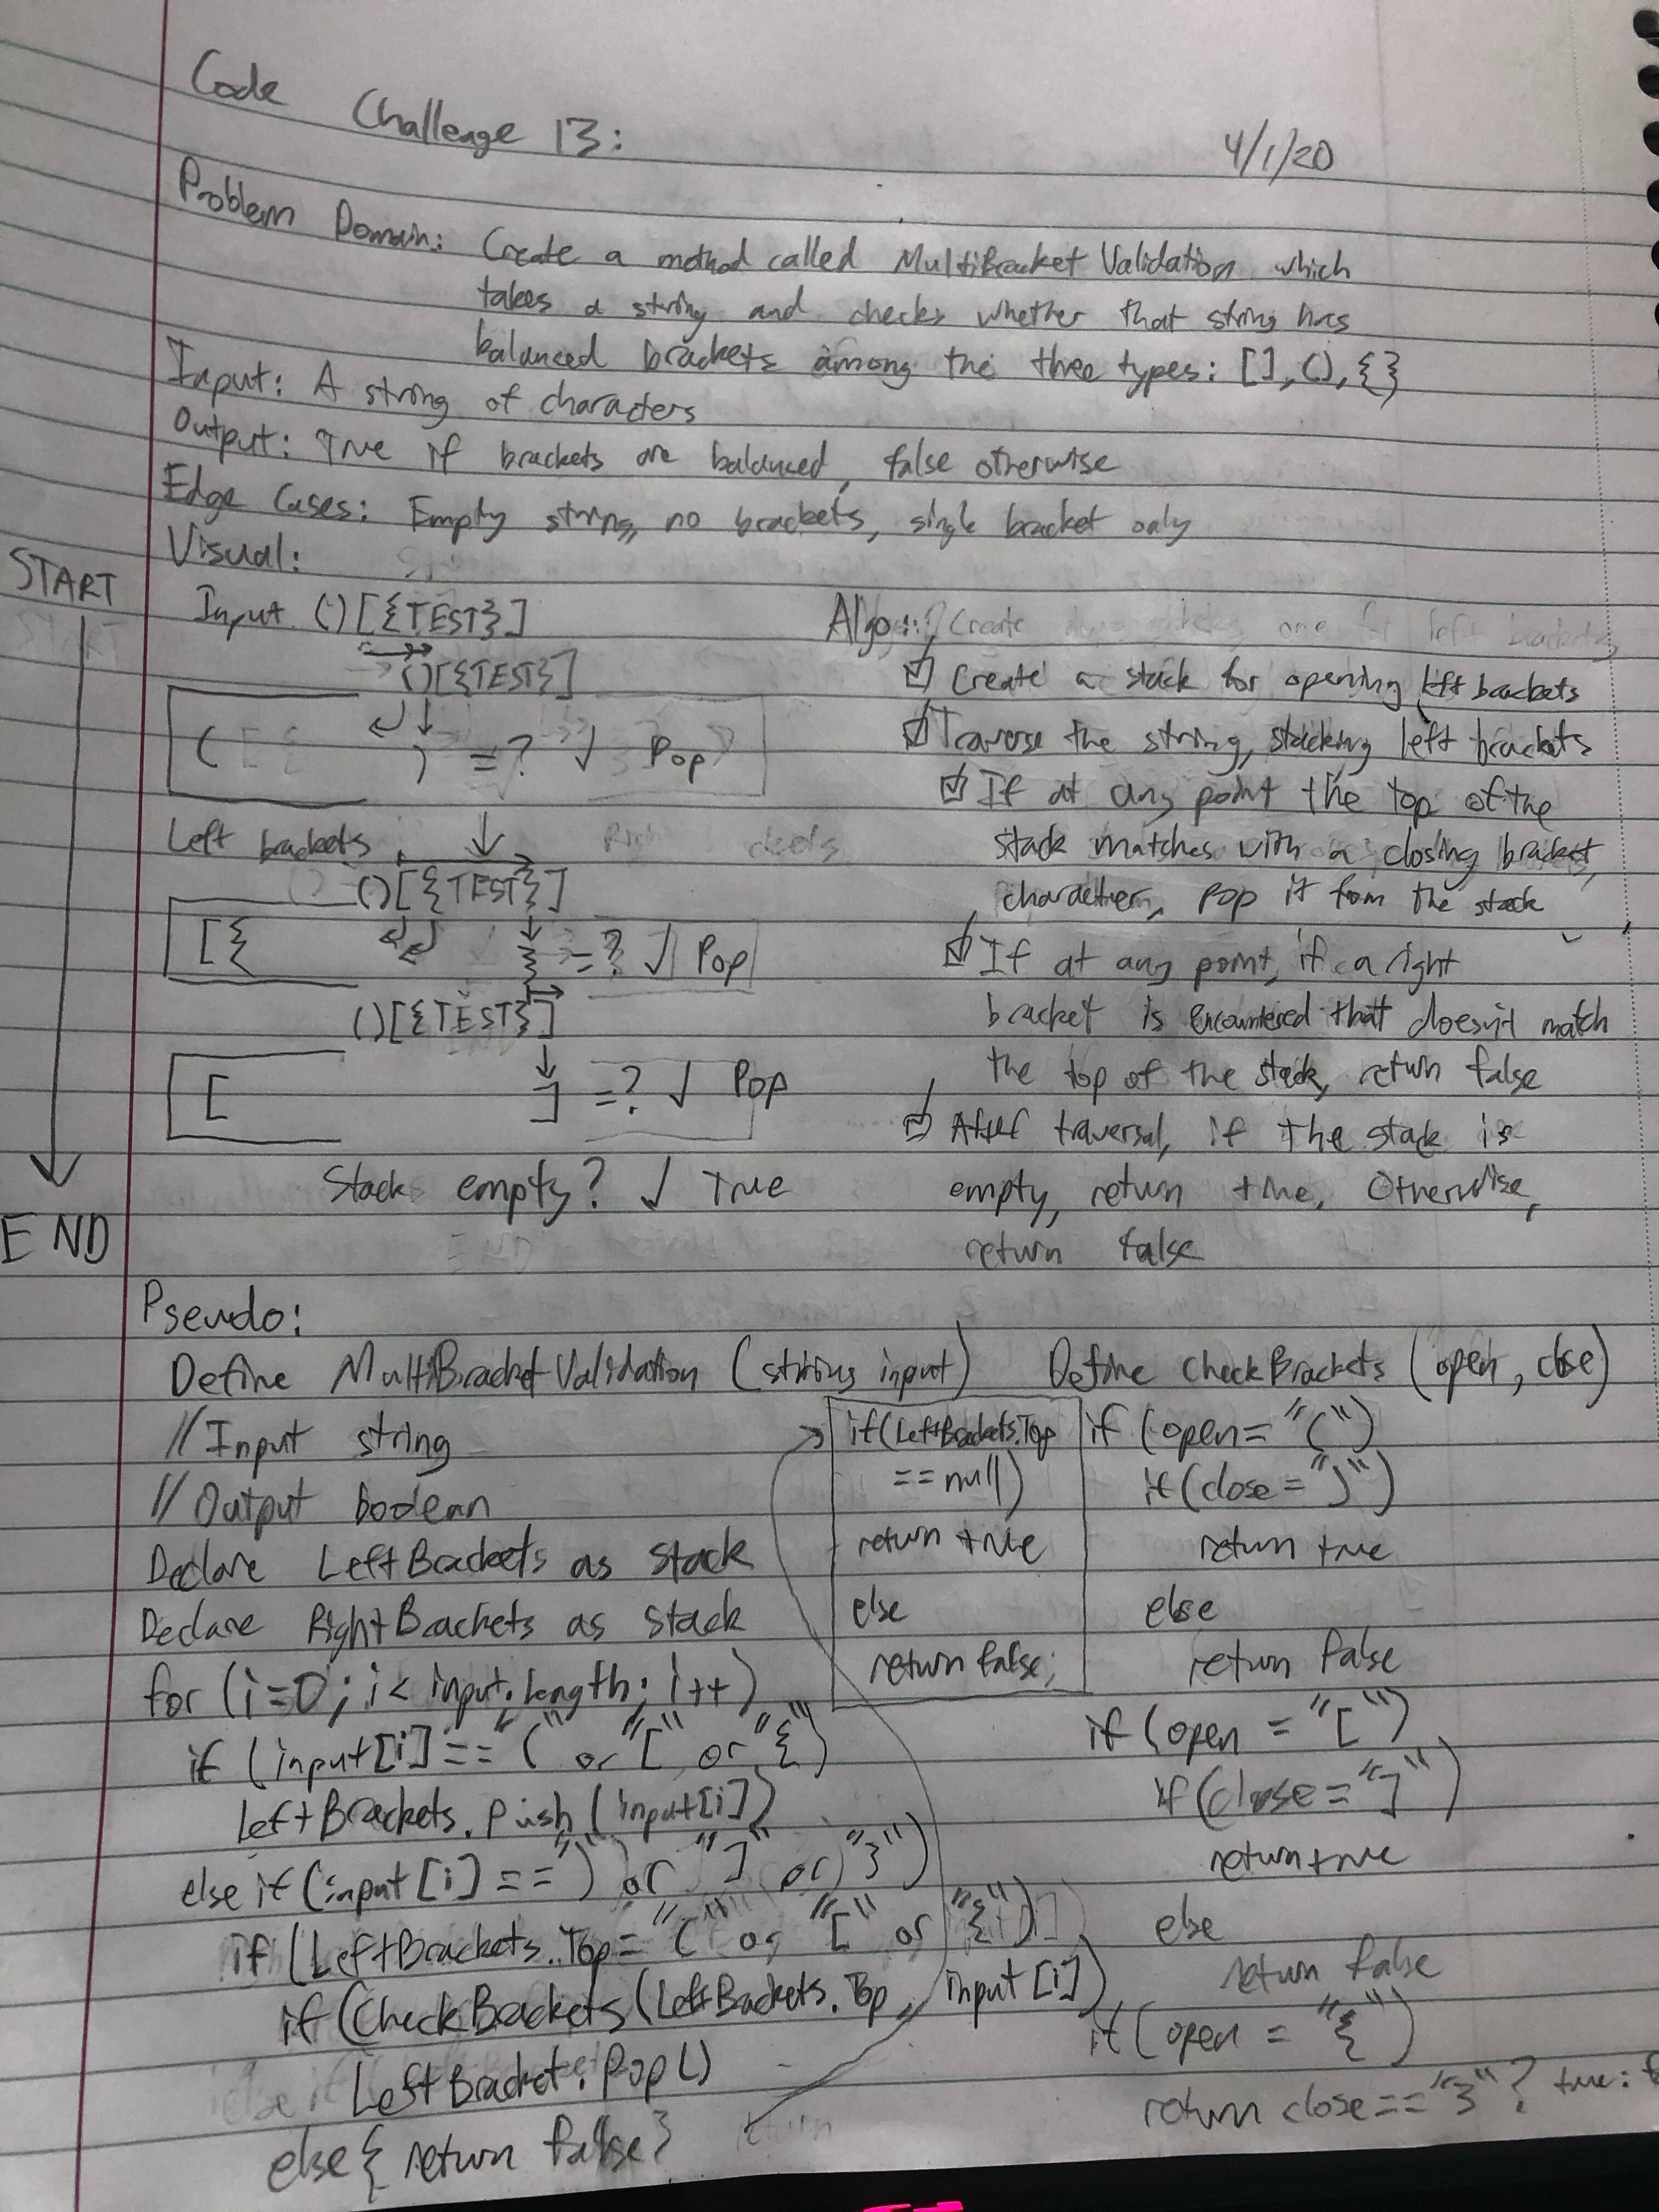 Code Challenge 13:
4/1/20
Problem Domain: Create a method called MultiBracket Validation which
takes a string and checks whether that string has
balanced brackets among the three types: [], (), {}
Input: A string of characters
Output: True if brackets are balanced, false otherwise
Edge Cases: Empty string, no brackets, single bracket only
Visual:
START
Input ()[{TEST}]
()[{TEST}]
( ) =? ✓ Pop
Left brackets
()[{TEST}]
[{ } =? ✓ Pop
()[{TEST}]
[ ] =? ✓ Pop
Stack empty? ✓ True
END
Algo: Create one for left brackets
☑ Create a stack for opening left brackets
☑ Traverse the string, stacking left brackets
☑ If at any point the top of the
stack matches with a closing bracket,
character, pop it from the stack
☑ If at any point, if a right
bracket is encountered that doesn't match
the top of the stack, return false
☑ After traversal, if the stack is
empty, return true, Otherwise,
return false
Pseudo:
Define MultiBracketValidation (string input)
// Input string
// Output boolean
Declare LeftBrackets as stack
Declare RightBrackets as stack
for (i=0; i < input.length; i++)
if (input[i] == "(" or "[" or "{")
LeftBrackets.Push(input[i])
else if (input[i] == ")" or "]" or "}")
if (LeftBrackets.Top = "(" or "[" or "{")
if (CheckBrackets(LeftBrackets.Top, input[i])
LeftBracket.Pop()
else{ return false}
if(LeftBrackets.Top
== null)
return true
else
return false;
Define CheckBrackets (open, close)
if (open = "(")
if (close = ")")
return true
else
return false
if (open = "[")
if (close = "]")
return true
else
return false
if (open = "{")
return close == "}" ? true: